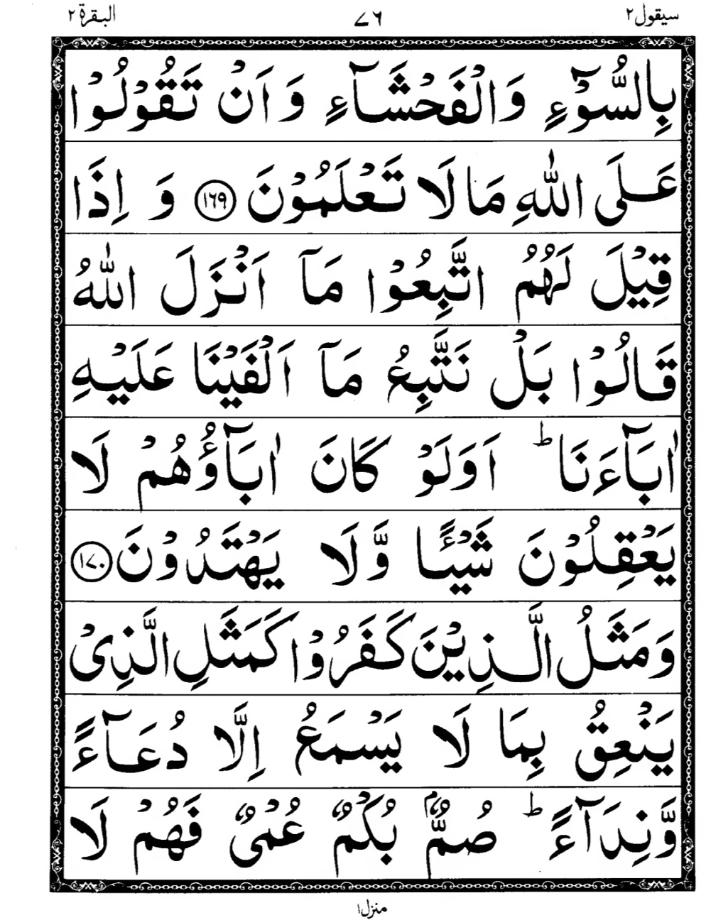 سيقول ٢ ٧٦ البقرة ٢
بِالسُّوْٓءِ وَالْفَحْشَآءِ وَ اَنْ تَقُوْلُوْا
عَلَى اللّٰهِ مَا لَا تَعْلَمُوْنَ ﴿١٦٩﴾ وَ اِذَا
قِيْلَ لَهُمُ اتَّبِعُوْا مَآ اَنْزَلَ اللّٰهُ
قَالُوْا بَلْ نَتَّبِعُ مَآ اَلْفَيْنَا عَلَيْهِ
اٰبَآءَنَا ؕ اَوَلَوْ كَانَ اٰبَآؤُهُمْ لَا
يَعْقِلُوْنَ شَيْـًٔا وَّلَا يَهْتَدُوْنَ ﴿١٧٠﴾
وَمَثَلُ الَّذِيْنَ كَفَرُوْا كَمَثَلِ الَّذِىْ
يَنْعِقُ بِمَا لَا يَسْمَعُ اِلَّا دُعَآءً
وَّنِدَآءً ؕ صُمٌّۢ بُكْمٌ عُمْىٌ فَهُمْ لَا
منزل ١